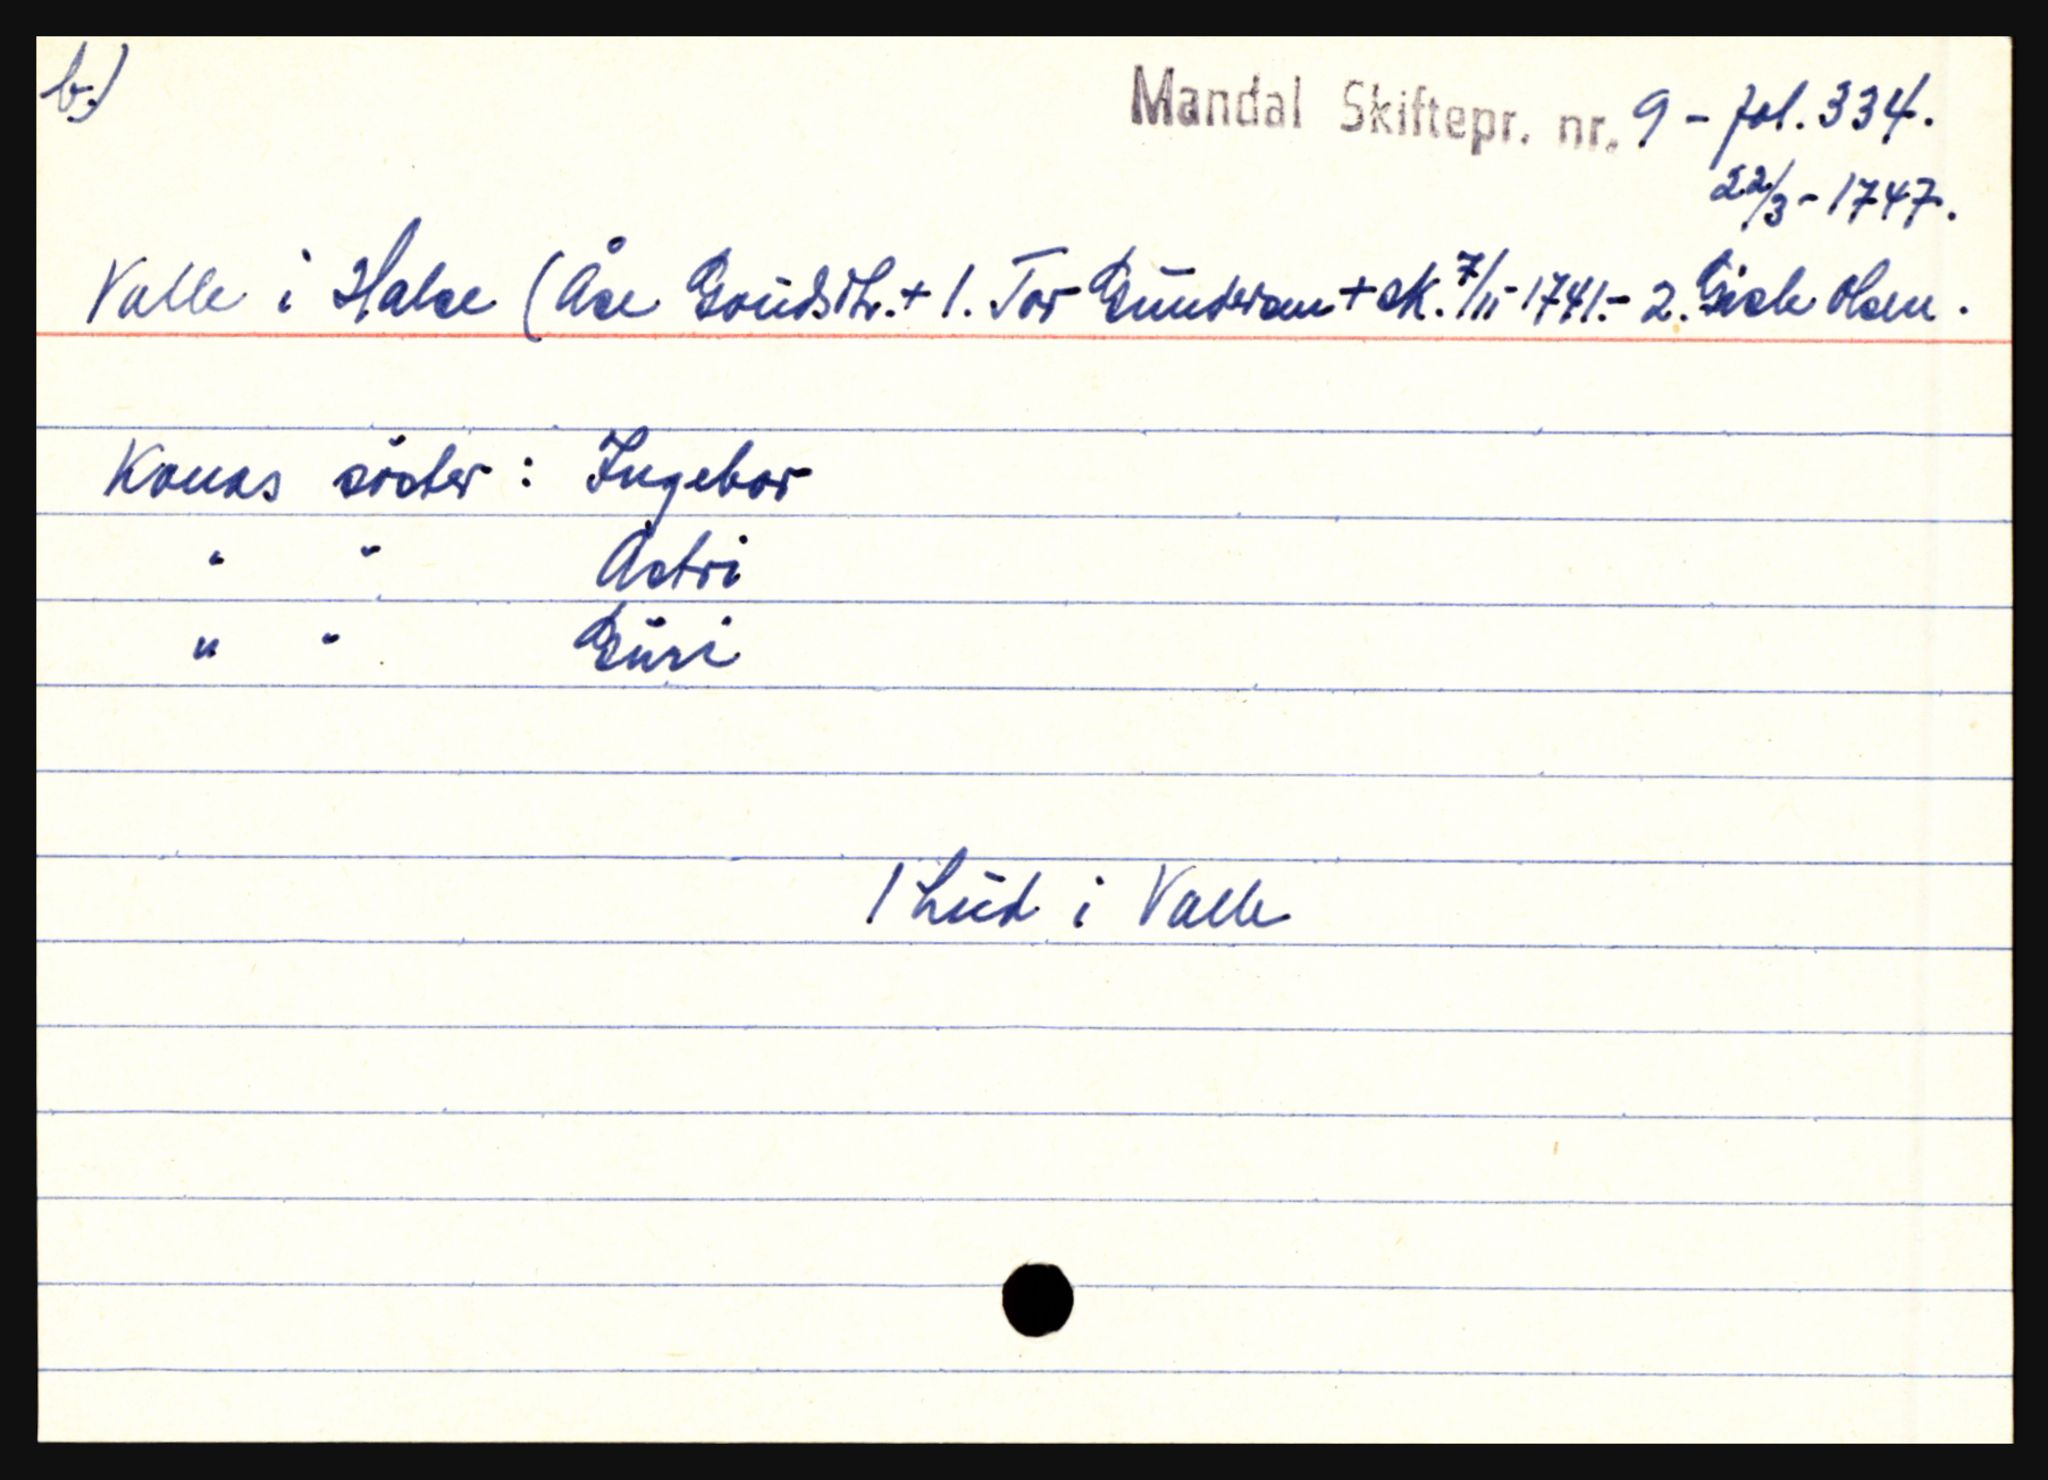 b.)
Mandal Skiftepr. nr. 9 - fol. 334.
22/3 - 1747.
Valle i Halse (Åse Gouds dtr. + 1. Tor Gunderson + sk. 7/11 - 1741. - 2. Gisle Olsen.
Konas söster : Ingebor
" " Astri
" " Guri
1 hud i Valle